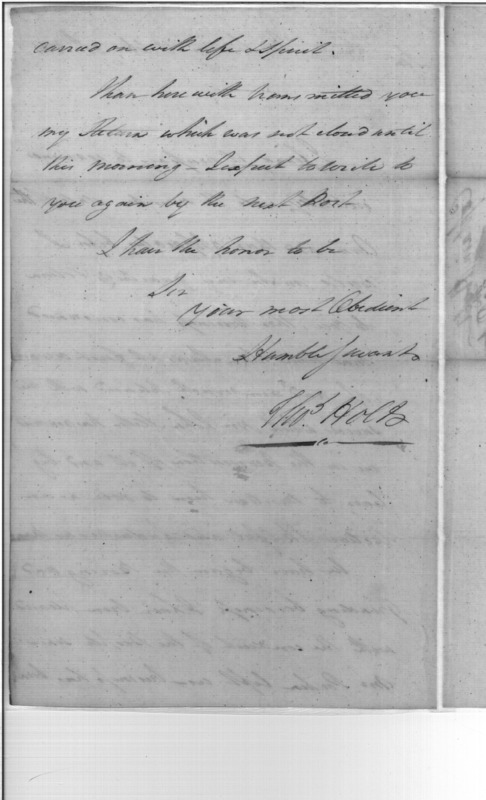 carried on with life & Spirit.
I have here with transmitted you
my Return which was not closed until
this morning – I expect to write to
you again by the next Post
I have the honor to be
Sir
Your most Obedient
Humble Servant
Thos. Holt